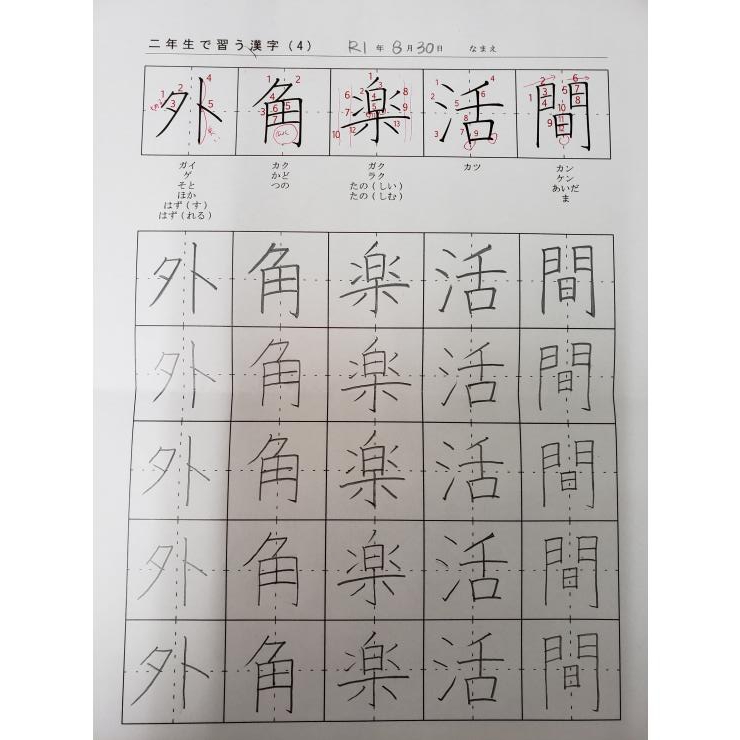 二年生で習う漢字(4) R1年 8月30日 なまえ
外 角 楽 活 間
ガイ
ゲ
そと
ほか
はず(す)
はず(れる)
カク
かど
つの
ガク
ラク
たの(しい)
たの(しむ)
カツ
カン
ケン
あいだ
ま
外 角 楽 活 間
外 角 楽 活 間
外 角 楽 活 間
外 角 楽 活 間
外 角 楽 活 間